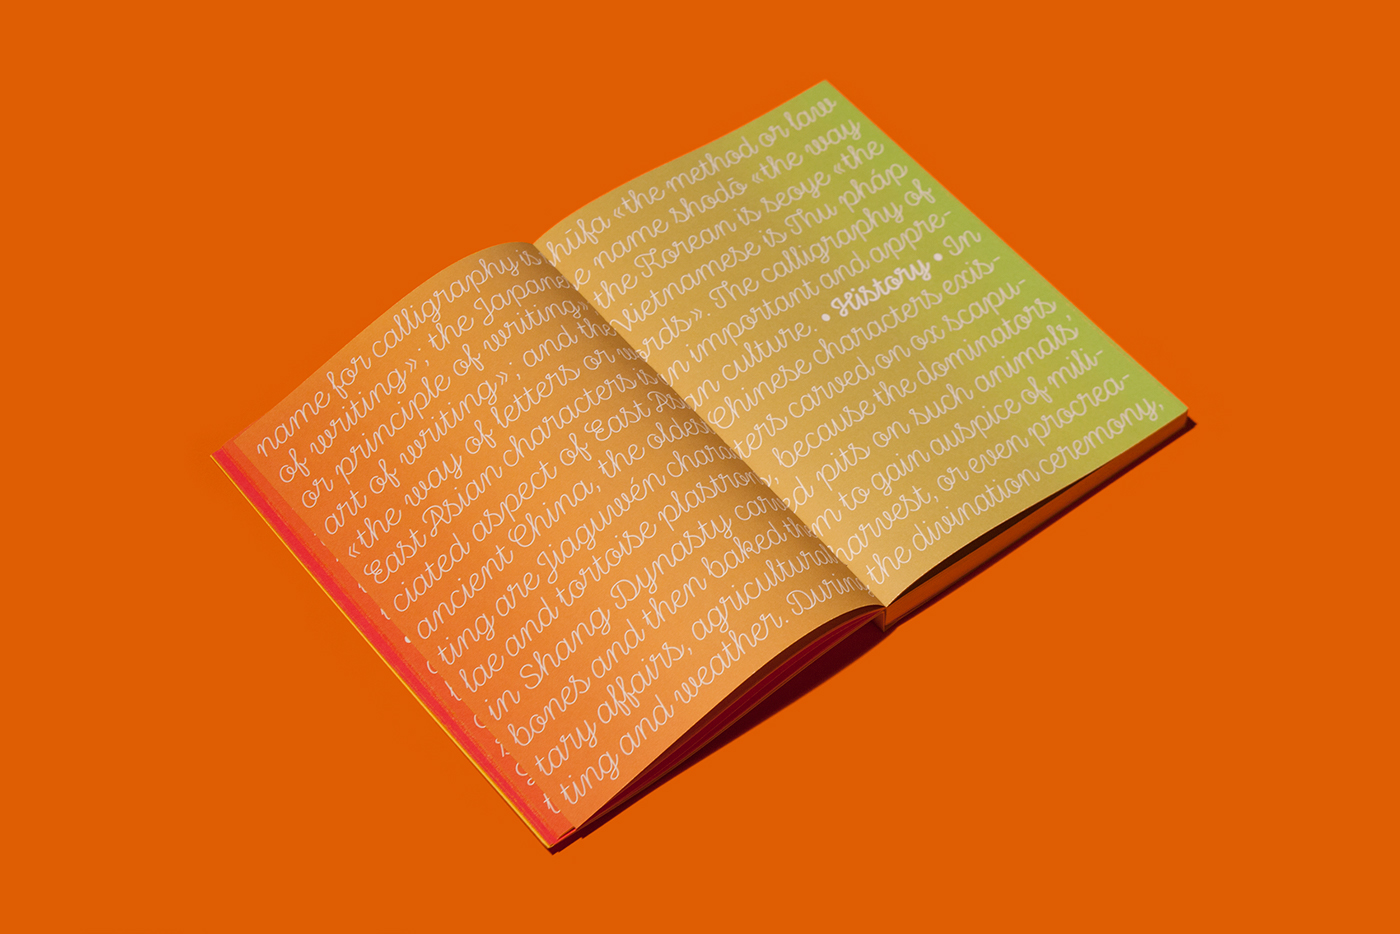 name for calligraphy is hūfa «the method or law
of writing»; the Japanese name shodō «the way
or principle of writing» the Korean is seoye «the
art of writing»; and the Vietnamese is Thu pháp
«the way of letters or words». The calligraphy of
East Asian characters is an important and appre-
ciated aspect of East Asian culture. • History • In
ancient China, the oldest Chinese characters exis-
ting are Jiaguwén characters carved on ox scapu-
lae and tortoise plastrons, because the dominators
in Shang Dynasty carved pits on such animals'
bones and then baked them to gain auspice of mili-
tary affairs, agricultural harvest, or even procrea-
ting and weather. During the divination ceremony,